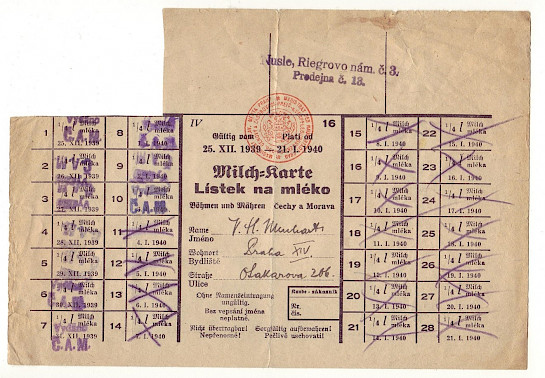 Nusle, Riegrovo nám. č. 3,
Prodejna č. 13.
IV 16
Gültig vom Platí od
25. XII. 1939 — 21. I. 1940
Milch-Karte
Lístek na mléko
Böhmen und Mähren Čechy a Morava
Name
Jméno
Wohnort Praha XIV.
Bydliště
Straße 266.
Ulice
Ohne Namenseintragung
ungültig.
Bez vepsání jména
neplatné.
Nicht übertragbar! Sorgfältig aufbewahren!
Nepřenosné! Pečlivě uschovati!
Kunde - zákazník
Nr.
čís.
1 1/4 l Milch mléka 25. XII. 1939
C.A.M.
2 1/4 l Milch mléka 26. XII. 1939
3
4 1/4 l Milch mléka 28. XII. 1939
5 1/4 l Milch mléka 29. XII. 1939
6 1/4 l Milch mléka 30. XII. 1939
7 1/4 l mléka 31. XII. 1939
C.A.M.
8 1/4 l Milch mléka
9 1/4 l Milch mléka 2. I. 1940
10 1/4 l
C.A.M.
11 1/4 l Milch mléka 4. I. 1940
12 1/4 l Milch mléka 5. I. 1940
13 1/4 l Milch mléka 6. I. 1940
14 1/4 l Milch mléka 7. I. 1940
15 1/4 l Milch mléka 8. I. 1940
16 1/4 l Milch mléka 9. I. 1940
17 1/4 l Milch mléka 10. I. 1940
18 1/4 l Milch mléka 11. I. 1940
19 1/4 l Milch mléka 12. I. 1940
20 1/4 l Milch mléka 13. I. 1940
21 1/4 l Milch mléka 14. I. 1940
22 1/4 l Milch mléka 15. I. 1940
23 1/4 l Milch mléka 16. I. 1940
24 1/4 l Milch mléka 17. I. 1940
25 1/4 l Milch mléka 18. I. 1940
26 1/4 l Milch mléka 19. I. 1940
27 1/4 l Milch mléka 20. I. 1940
28 1/4 l Milch mléka 21. I. 1940